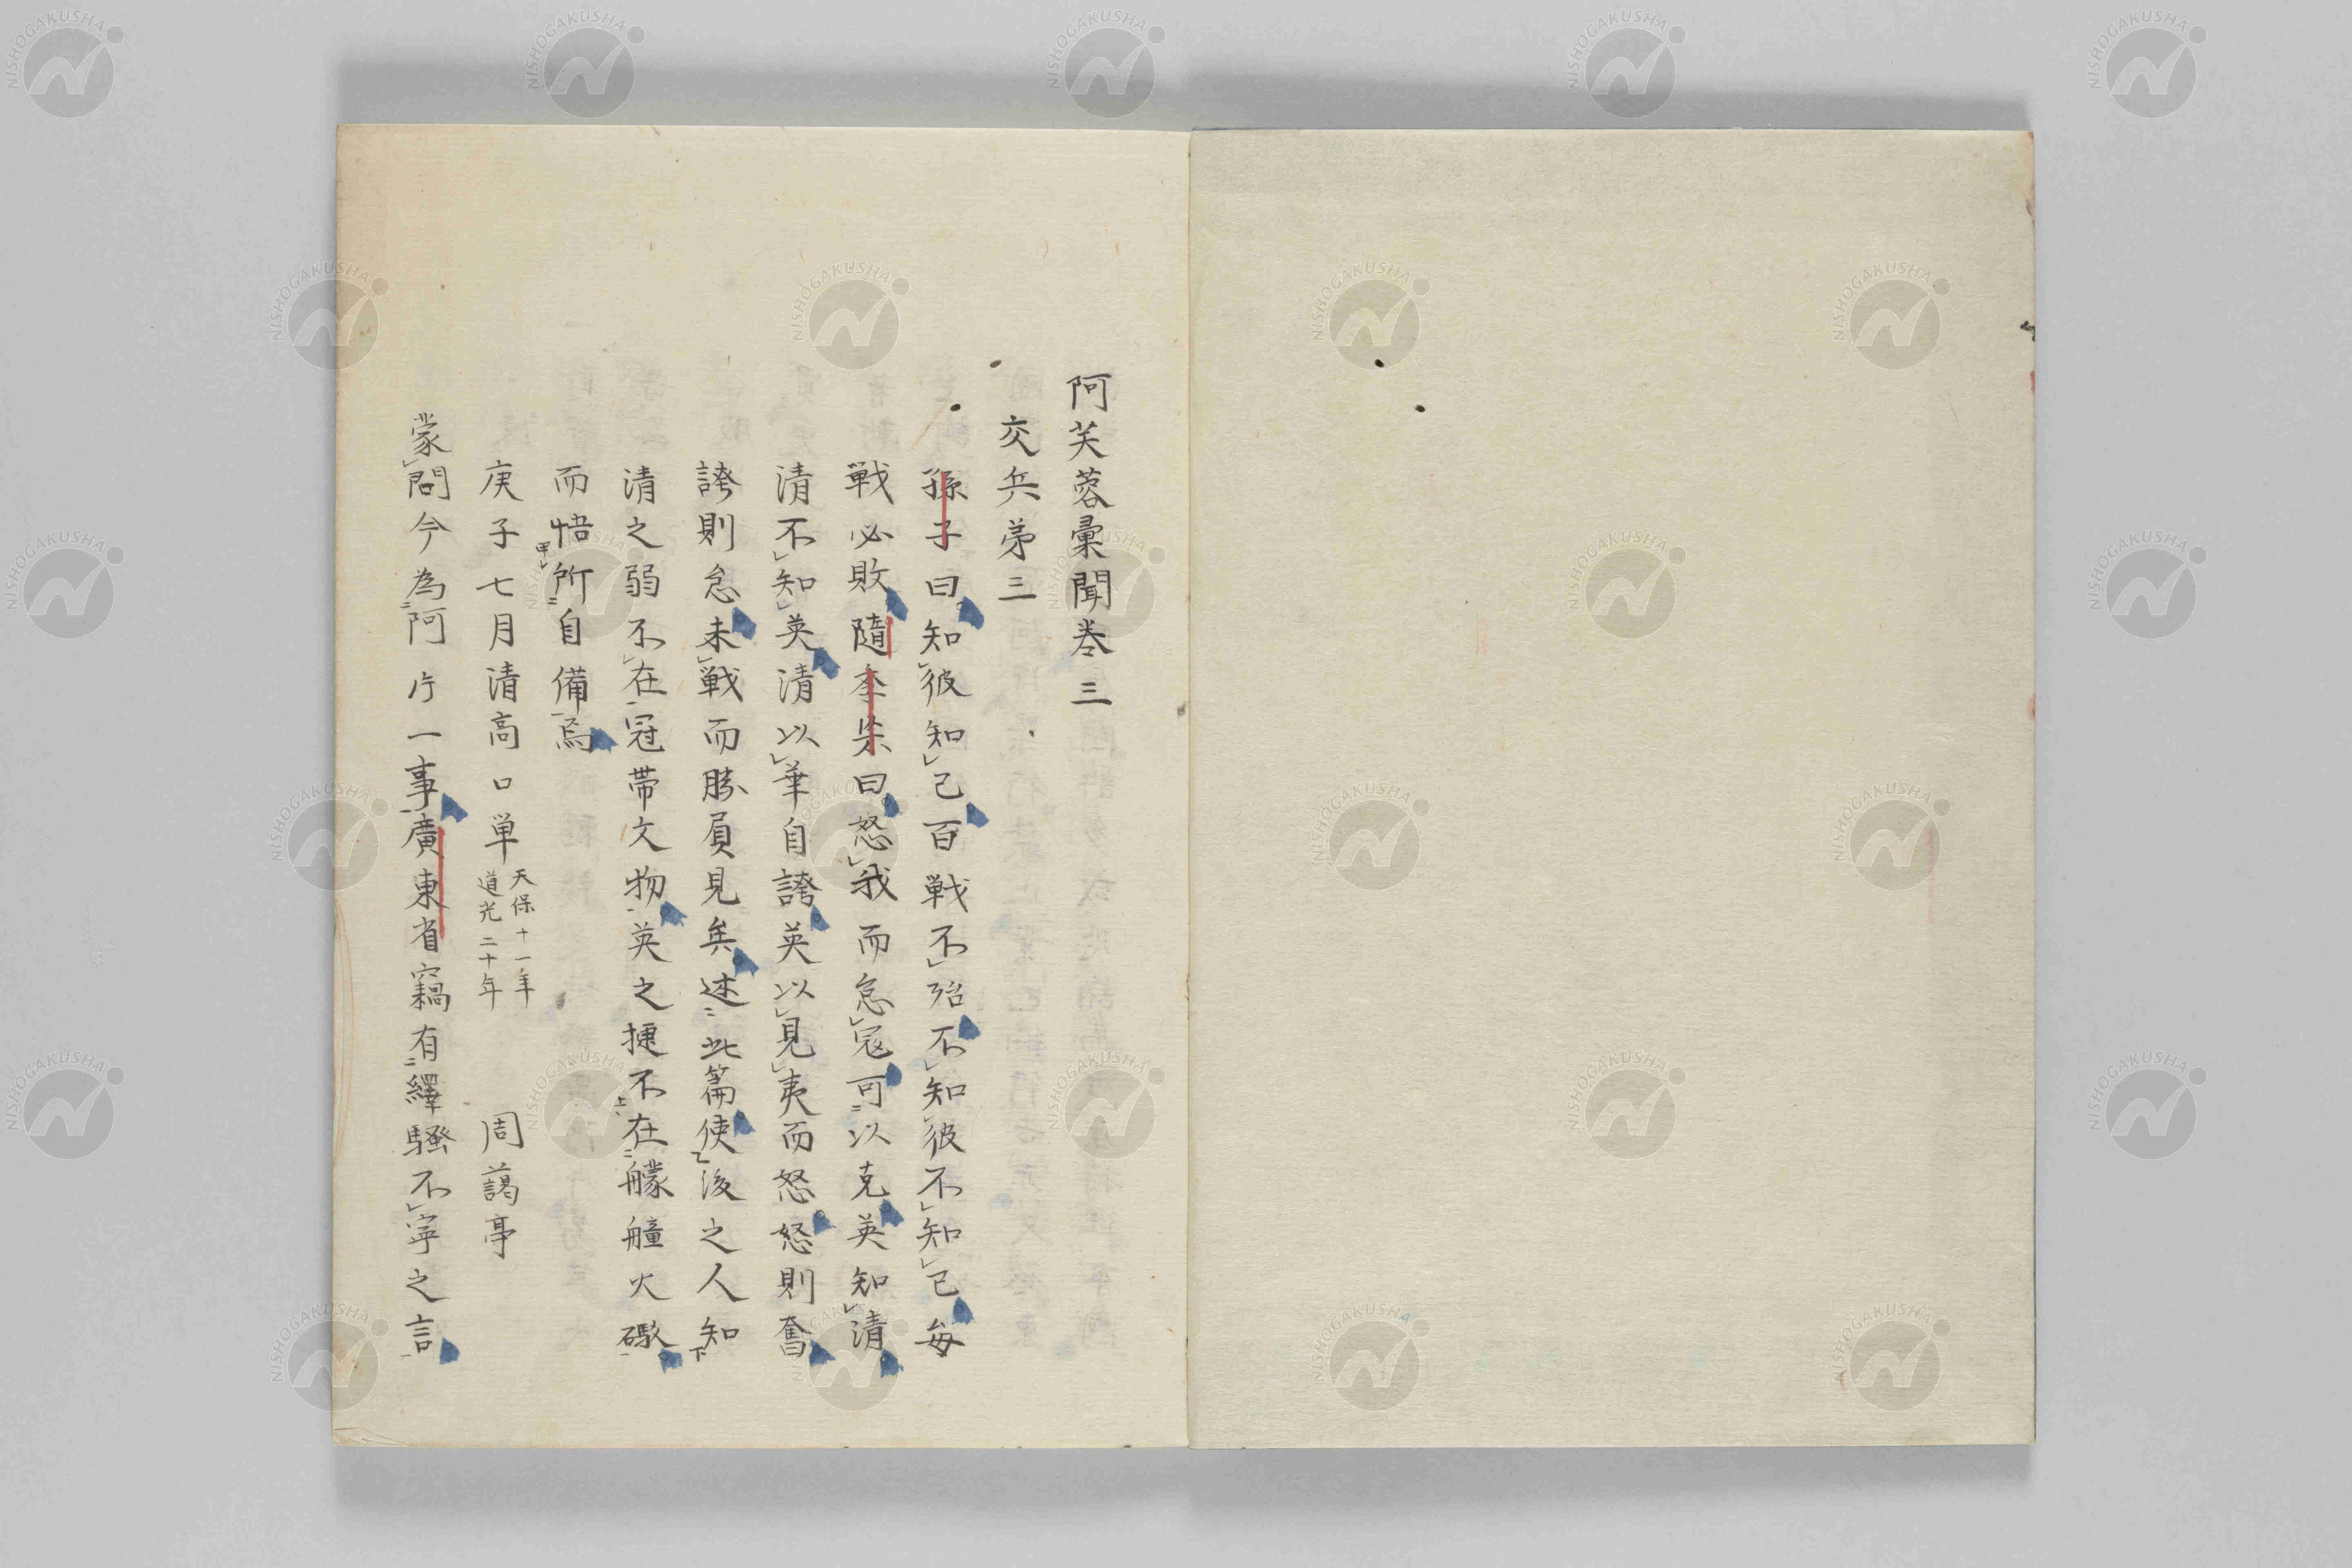 阿芙蓉彙聞巻三
交兵第三
孫子曰知彼知己百戦不殆不知彼不知己毎
戦必敗隨季梁曰怒我而怠寇可以克英知清
清不知英清以華自誇英以見夷而怒怒則奮
誇則怠未戦而勝負見矣述此篇使後之人知
清之弱不在冠帯文物英之捷不在艨艟火礮
而悟所自備焉
庚子七月清商口単 天保十一年 道光二十年 周藹亭
蒙問今為阿片一事廣東省竊有繹騒不寧之言
NISHOGAKUSHA